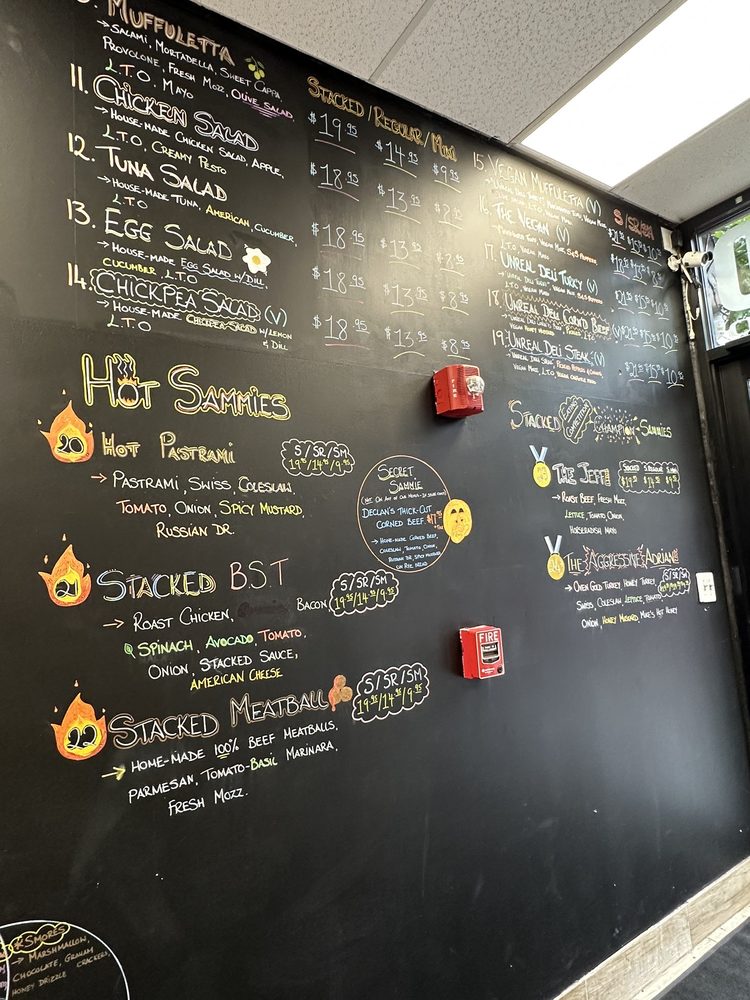 MUFFULETTA
→ SALAMI, MORTADELLA, SWEET CAPPA,
PROVOLONE, FRESH MOZZ, OLIVE SALAD,
L.T.O, MAYO
11. CHICKEN SALAD
→ HOUSE-MADE CHICKEN SALAD, APPLE,
L.T.O, CREAMY PESTO
12. TUNA SALAD
→ HOUSE-MADE TUNA, AMERICAN, CUCUMBER,
L.T.O
13. EGG SALAD
→ HOUSE-MADE EGG SALAD W/DILL
CUCUMBER, L.T.O
14. CHICKPEA SALAD (V)
→ HOUSE-MADE CHICKPEA SALAD W/LEMON
& DILL
L.T.O
STACKED / REGULAR / MINI
$19.95 $14.95 $9.95
$18.95 $13.95 $8.95
$18.95 $13.95 $8.95
$18.95 $13.95 $8.95
$18.95 $13.95 $8.95
15. VEGAN MUFFULETTA (V)
S/SR/SM
16. THE VEGAN (V)
L.T.O, VEGAN MAYO
17. UNREAL DELI TURKEY (V)
L.T.O, VEGAN MAYO
18. UNREAL DELI CORNED BEEF (V)
19. UNREAL DELI STEAK (V)
VEGAN MOZZ, L.T.O, VEGAN CHIPOTLE MAYO
HOT SAMMIES
20 HOT PASTRAMI
S/SR/SM
19.95/14.95/9.95
→ PASTRAMI, SWISS, COLESLAW,
TOMATO, ONION, SPICY MUSTARD,
RUSSIAN DR.
21 STACKED B.S.T
S/SR/SM
19.95/14.95/9.95
→ ROAST CHICKEN, BACON
SPINACH, AVOCADO, TOMATO,
ONION, STACKED SAUCE,
AMERICAN CHEESE
22 STACKED MEATBALL
S/SR/SM
19.95/14.95/9.95
→ HOME-MADE 100% BEEF MEATBALLS,
PARMESAN, TOMATO-BASIL MARINARA,
FRESH MOZZ.
SECRET
SAMMIE
DECLAN'S THICK-CUT
CORNED BEEF
→ HOME-MADE CORNED BEEF,
COLESLAW, TOMATO, ONION,
RUSSIAN DR, SPICY MUSTARD
ON RYE BREAD
STACKED EATING COMPETITION CHAMPION SAMMIES
THE JEFF
→ ROAST BEEF, FRESH MOZZ,
LETTUCE, TOMATO, ONION,
HORSERADISH MAYO
THE AGGRESSIVE ADRIAN
S/SR/SM
→ OVEN GOLD TURKEY, HONEY TURKEY,
SWISS, COLESLAW, LETTUCE, TOMATO
ONION, HONEY MUSTARD, MIKE'S HOT HONEY
FIRE
FIRE
S'MORES
→ MARSHMALLOW,
CHOCOLATE, GRAHAM
HONEY DRIZZLE CRACKERS,